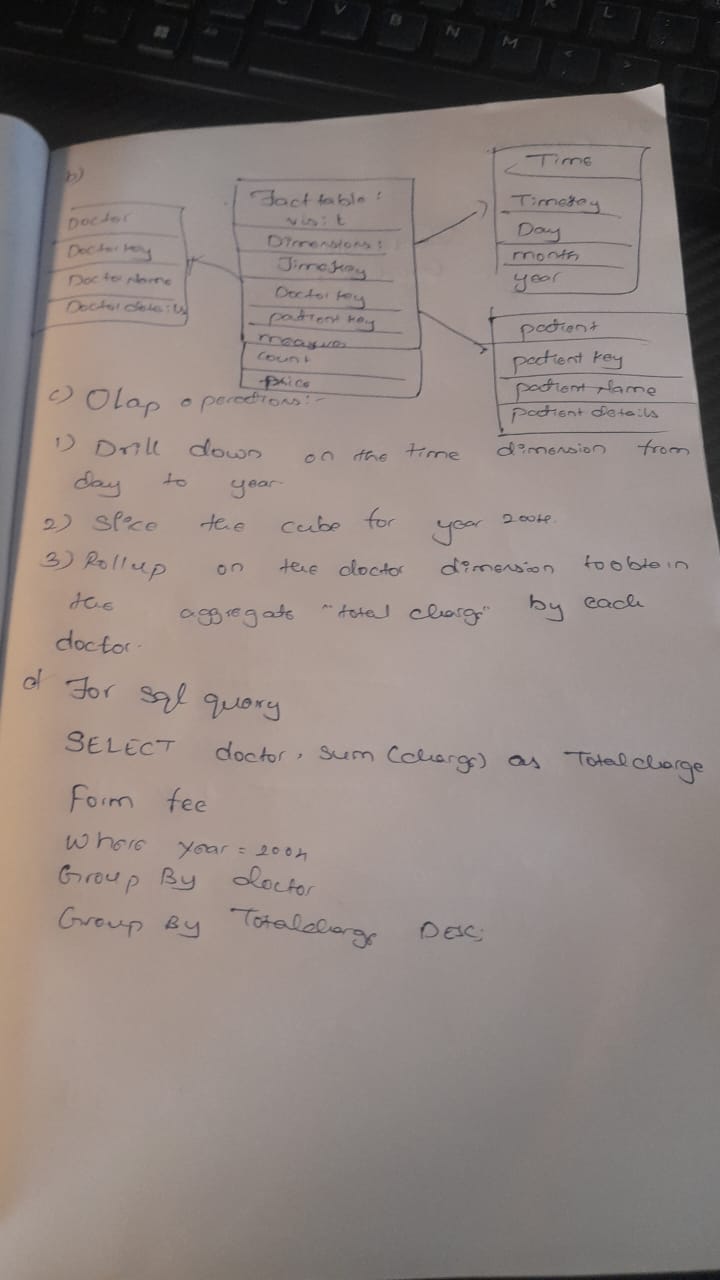 b)
Doctor
Doctor key
Doctor Name
Doctor details
Fact table:
visit
Dimensions:
Time key
Doctor key
patient key
measures
count
price
Time
Timekey
Day
month
year
patient
patient key
patient Name
patient details
c) Olap operations:-
1) Drill down on the time dimension from
day to year
2) Slice the cube for year 2004.
3) Rollup on the doctor dimension to obtain
the aggregate "total charge" by each
doctor.
d For sql query
SELECT doctor, sum (charge) as Totalcharge
Form fee
Where year = 2004
Group By doctor
Group By Totalcharge DESC;